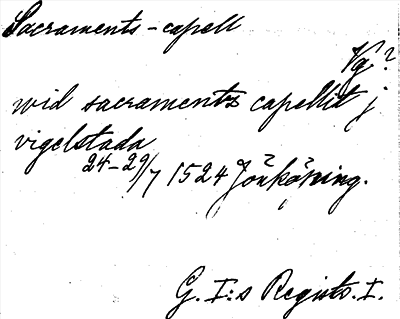 Sacraments-capell
Vg?
wid sacramentz capellit j
vigelstada
24-29/7 1524 Jönköping.
G. I:s Registr. I.